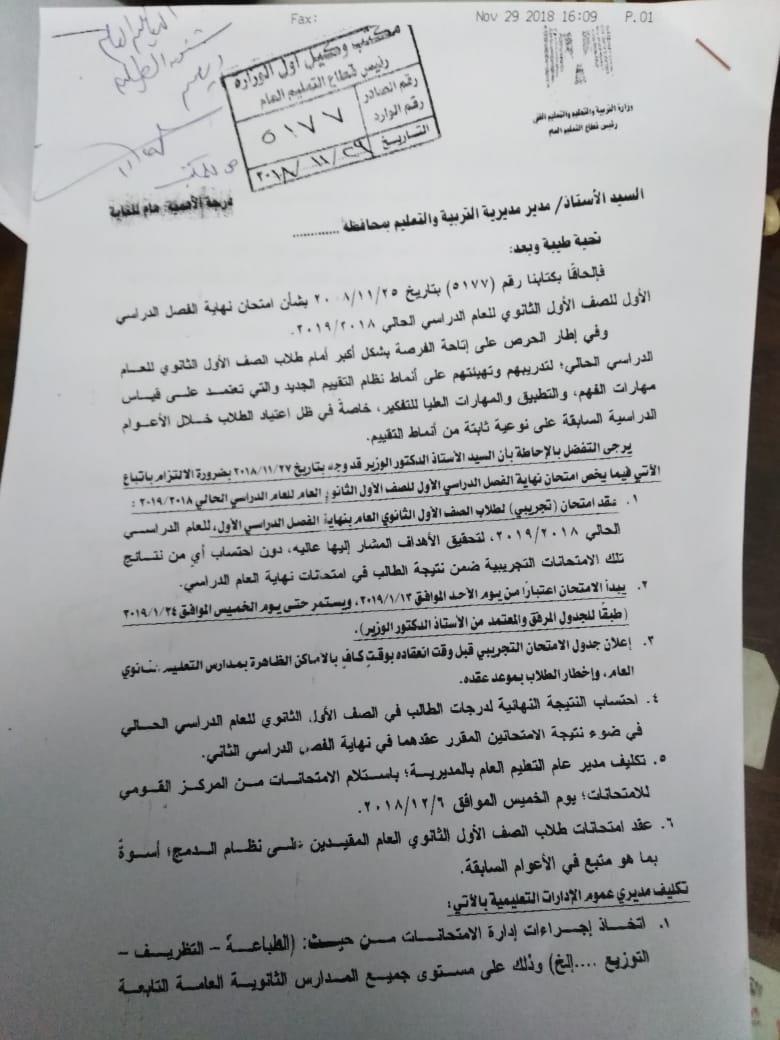 Fax:
Nov 29 2018 16:09 P.01
وزارة التربية والتعليم والتعليم الفنى
رئيس قطاع التعليم العام
مكتب وكيل أول الوزارة
رئيس قطاع التعليم العام
رقم الصادر
رقم الوارد
٥١٧٧
التاريخ ٢٠١٨/١١/٢٩
درجة الأهمية: هام للغاية
السيد الأستاذ/ مدير مديرية التربية والتعليم بمحافظة ............
تحية طيبة وبعد:
فإلحاقًا بكتابنا رقم (٥١٧٧) بتاريخ ٢٠١٨/١١/٢٥ بشأن امتحان نهاية الفصل الدراسي
الأول للصف الأول الثانوي للعام الدراسي الحالي ٢٠١٩/٢٠١٨.
وفي إطار الحرص على إتاحة الفرصة بشكل أكبر أمام طلاب الصف الأول الثانوي للعام
الدراسي الحالي؛ لتدريبهم وتهيئتهم على أنماط نظام التقييم الجديد والتي تعتمد على قياس
مهارات الفهم، والتطبيق والمهارات العليا للتفكير، خاصةً في ظل اعتياد الطلاب خلال الأعوام
الدراسية السابقة على نوعية ثابتة من أنماط التقييم.
يرجى التفضل بالإحاطة بأن السيد الأستاذ الدكتور الوزير قد وجه بتاريخ ٢٠١٨/١١/٢٧ بضرورة الالتزام باتباع
الآتي فيما يخص امتحان نهاية الفصل الدراسي الأول للصف الأول الثانوي العام للعام الدراسي الحالي ٢٠١٩/٢٠١٨ :
١. عقد امتحان (تجريبي) لطلاب الصف الأول الثانوي العام بنهاية الفصل الدراسي الأول، للعام الدراسي
الحالي ٢٠١٩/٢٠١٨، لتحقيق الأهداف المشار إليها عاليه، دون احتساب أي من نتائج
تلك الامتحانات التجريبية ضمن نتيجة الطالب في امتحانات نهاية العام الدراسي.
٢. يبدأ الامتحان اعتبارًا من يوم الأحد الموافق ٢٠١٩/١/١٣، ويستمر حتى يوم الخميس الموافق ٢٠١٩/١/٢٤
(طبقًا للجدول المرفق والمعتمد من الأستاذ الدكتور الوزير).
٣. إعلان جدول الامتحان التجريبي قبل وقت انعقاده بوقتٍ كافٍ بالأماكن الظاهرة بمدارس التعليم الثانوي
العام، وإخطار الطلاب بموعد عقده.
٤. احتساب النتيجة النهائية لدرجات الطالب في الصف الأول الثانوي للعام الدراسي الحالي
في ضوء نتيجة الامتحانين المقرر عقدهما في نهاية الفصل الدراسي الثاني.
٥. تكليف مدير عام التعليم العام بالمديرية؛ باستلام الامتحانات من المركز القومي
للامتحانات؛ يوم الخميس الموافق ٢٠١٨/١٢/٦.
٦. عقد امتحانات طلاب الصف الأول الثانوي العام المقيدين على نظام الدمج؛ أسوةً
بما هو متبع في الأعوام السابقة.
تكليف مديري عموم الإدارات التعليمية بالآتي:
١. اتخاذ إجراءات إدارة الامتحانات من حيث: (الطباعة – التظريف –
التوزيع ....إلخ) وذلك على مستوى جميع المدارس الثانوية العامة التابعة